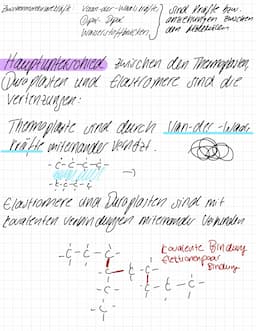 Zwischenmolekularkraft Van-der-Waals Kräfte sind Kräfte bzw.
Dipol-Dipol anziehungen zwischen
Wasserstoffbrücken den Molekülen
Hauptunterschied zwischen den Thermoplasten,
Duroplasten und Elastomere sind die
Vernetzungen:
Thermoplaste sind durch Van-der-Waals
Kräfte miteinander vernetzt.
-C-C-C-C-
-C-C-C-C-
Elastomere und Duroplasten sind mit
kovalenten verbindungen miteinander verbunden
Kovalente Bindung
Elektronenpaar
Bindung
-C-C-C-
-C- C-C-
-C- -C-C-C-
-C-